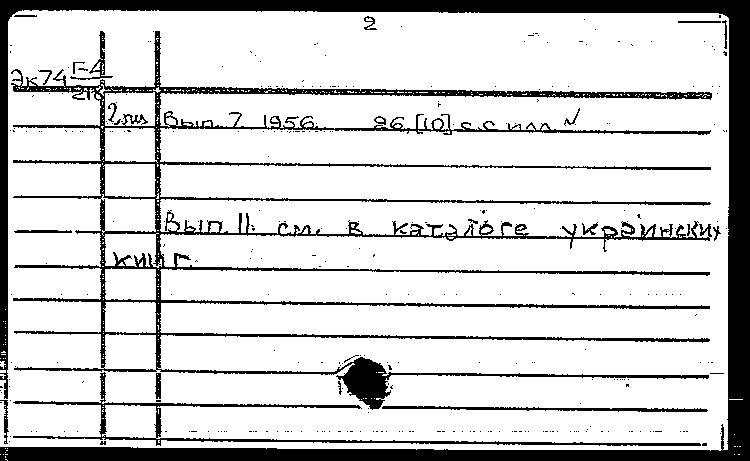 2
Эк74 Г-4
218
2экз Вып. 7 1956. 96,[10] с. с илл.
Вып. 11. см. в каталоге украинских
книг.